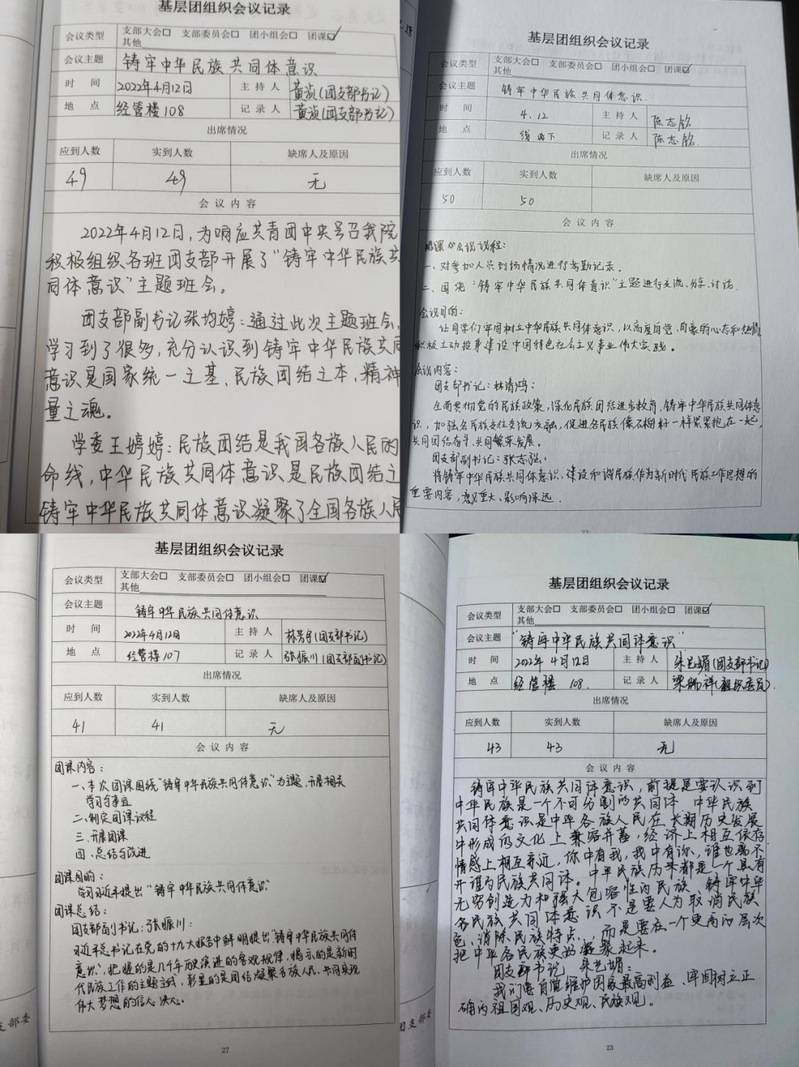 基层团组织会议记录
会议类型 支部大会□ 支部委员会□ 团小组会□ 团课☑
其他
会议主题 铸牢中华民族共同体意识
时 间 2022年4月12日 主 持 人 黄滢(团支部书记)
地 点 经管楼108 记 录 人 黄滢(团支部书记)
出席情况
应到人数 实到人数 缺席人及原因
49 49 无
会 议 内 容
2022年4月12日，为响应共青团中央号召我院
积极组织各班团支部开展了“铸牢中华民族共
同体意识”主题班会。
团支部副书记张均婷：通过此次主题班会，
学习到了很多，充分认识到铸牢中华民族共同
意识是国家统一之基、民族团结之本，精神
量之魂。
学委王婷婷：民族团结是我国各族人民的
命线，中华民族共同体意识是民族团结之
铸牢中华民族共同体意识凝聚了全国各族人民
基层团组织会议记录
会议类型 支部大会□ 支部委员会□ 团小组会□ 团课☑
其他
会议主题 铸牢中华民族共同体意识
时 间 4.12 主 持 人 陈志铭
地 点 线上下 记 录 人 陈志铭
出席情况
应到人数 实到人数 缺席人及原因
50 50
会 议 内 容
团课会议议程：
一、对参加人员到场情况进行考勤记录。
二、围绕“铸牢中华民族共同体意识”主题进行交流、分享、讨论。
会议目的：
让同学们牢固树立中华民族共同体意识，以高度自觉、自豪的心态和热情
积极主动投事建设中国特色社会主义事业伟大实践。
会议内容：
团支部书记：林清鸿：
全面贯彻党的民族政策，深化民族团结进步教育，铸牢中华民族共同体意
识，加强各民族交往交流交融，促进各民族像石榴籽一样紧紧抱在一起，
共同团结奋斗、共同繁荣发展。
团支部副书记：张志强：
将铸牢中华民族共同体意识、建设和谐民族作为新时代民族工作思想的
重要内容，意义重大、影响深远。
基层团组织会议记录
会议类型 支部大会□ 支部委员会□ 团小组会□ 团课☑
其他
会议主题 铸牢中华民族共同体意识
时 间 2022年4月12日 主 持 人 林芳宇(团支部书记)
地 点 经管楼107 记 录 人 张振川(团支部副书记)
出席情况
应到人数 实到人数 缺席人及原因
41 41 无
会 议 内 容
团课内容：
一、本次团课围绕“铸牢中华民族共同体意识”为主题，开展相关
学习与事宜
二、制定团课议程
三、开展团课
四、总结与改进
团课目的：
学习习近平提出“铸牢中华民族共同体意识”
团课总结：
团支部副书记：张振川：
习近平总书记在党的十九大报告中鲜明提出“铸牢中华民族共同体
意识”，把握的是几千年历史演进的客观规律，揭示的是新时
代民族工作的主题主线，彰显的是团结凝聚各族人民、共同实现
伟大梦想的信心决心。
27
基层团组织会议记录
会议类型 支部大会□ 支部委员会□ 团小组会□ 团课☑
其他
会议主题 “铸牢中华民族共同体意识”
时 间 2022年4月12日 主 持 人 朱艺媚(团支部书记)
地 点 经管楼 108. 记 录 人 梁炀祥(组织委员)
出席情况
应到人数 实到人数 缺席人及原因
43 43 无
会 议 内 容
铸牢中华民族共同体意识，前提是要认识到
中华民族是一个不可分割的共同体 中华民族
共同体意识是中华各族人民在长期历史发展
中形成的文化上兼收并蓄，经济上相互依存
情感上相互亲近，你中有我，我中有你，谁也离不
开谁的民族共同体。中华民族历来都是一个具有
无穷创造力和强大包容性的民族，铸牢中华
各民族共同体意识不是要人为取消民族
色、消除民族特点，而是要在一个更高的层次
把中华各民族更好凝聚起来。
团支部书记 朱艺媚：
我们要自觉维护国家最高利益、牢固树立正
确的祖国观、历史观、民族观。
23
团支部委